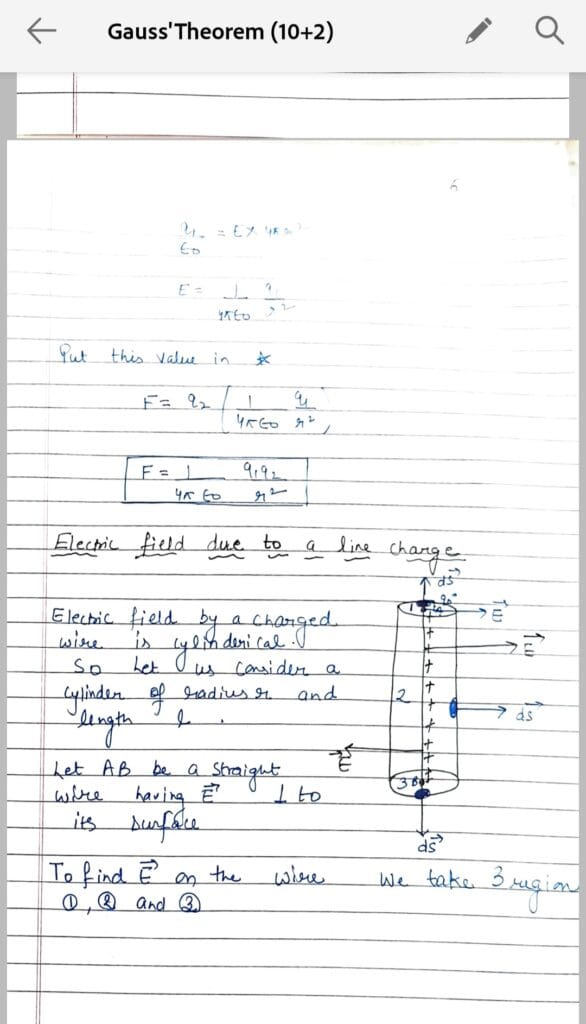 Gauss'Theorem (10+2)
6
q₁/ε₀ = E × 4πr²
E = 1/4πε₀ q₁/r²
Put this value in *
F = q₂ [ 1/4πε₀ q₁/r² ]
F = 1/4πε₀ q₁q₂/r²
Electric field due to a line charge
Electric field by a charged
wire is cylinderical.
So let us consider a
cylinder of radius r and
length l.
Let AB be a straight
wire having E⃗ ⊥ to
its surface
ds⃗
1
90°
E⃗
E⃗
2
ds⃗
E⃗
3
ds⃗
To find E⃗ on the wire we take 3 region
①, ② and ③